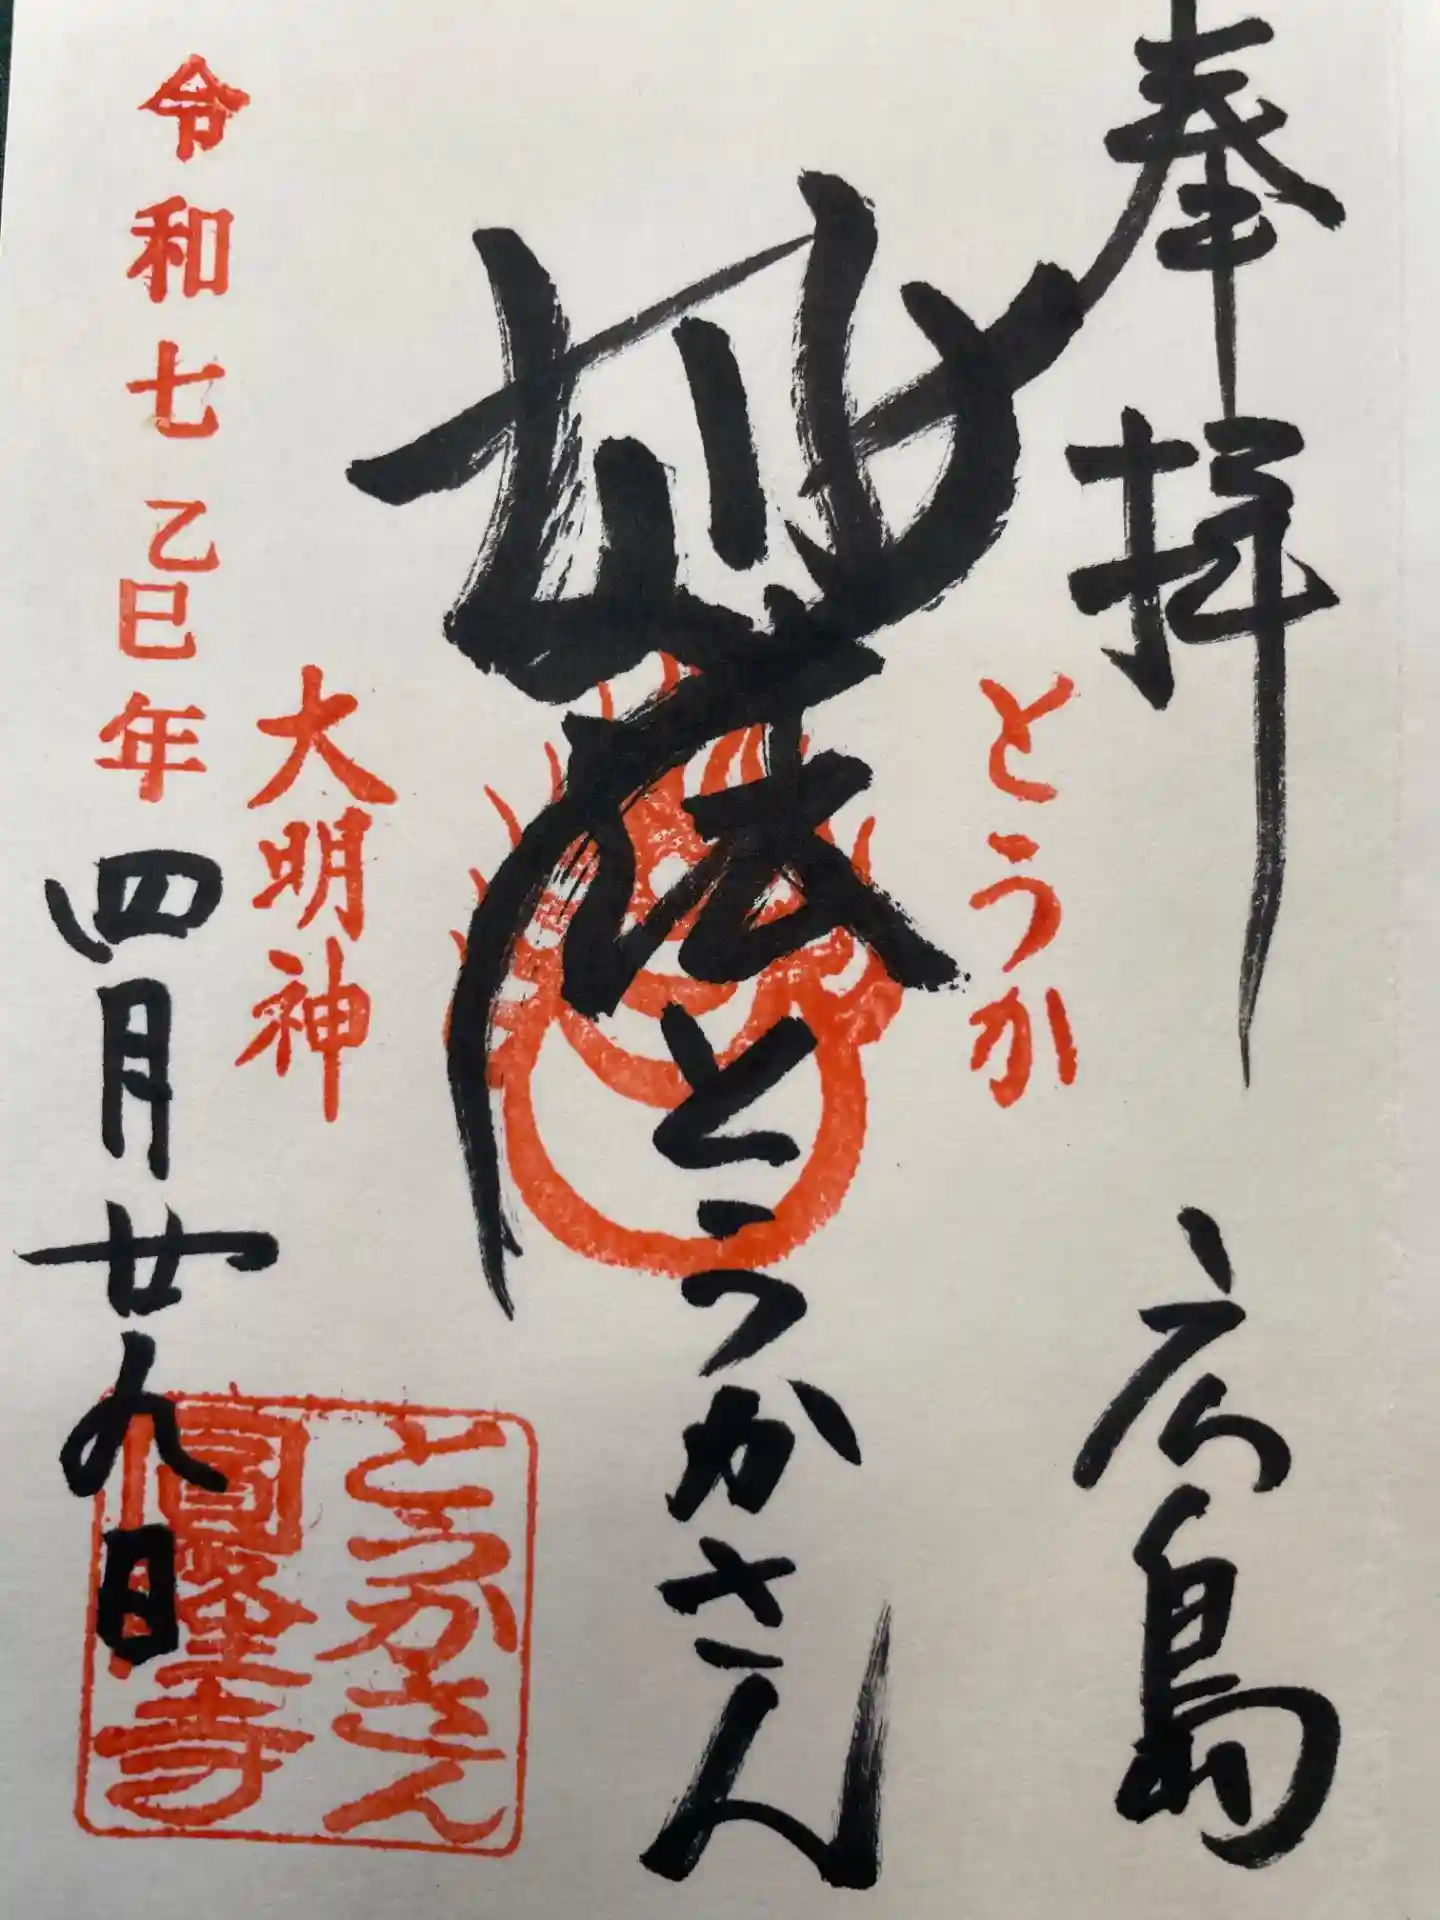 奉拝 広島
とうか
妙法 とうかさん
大明神
令和七乙巳年四月廿九日
とうかさん
圓隆寺